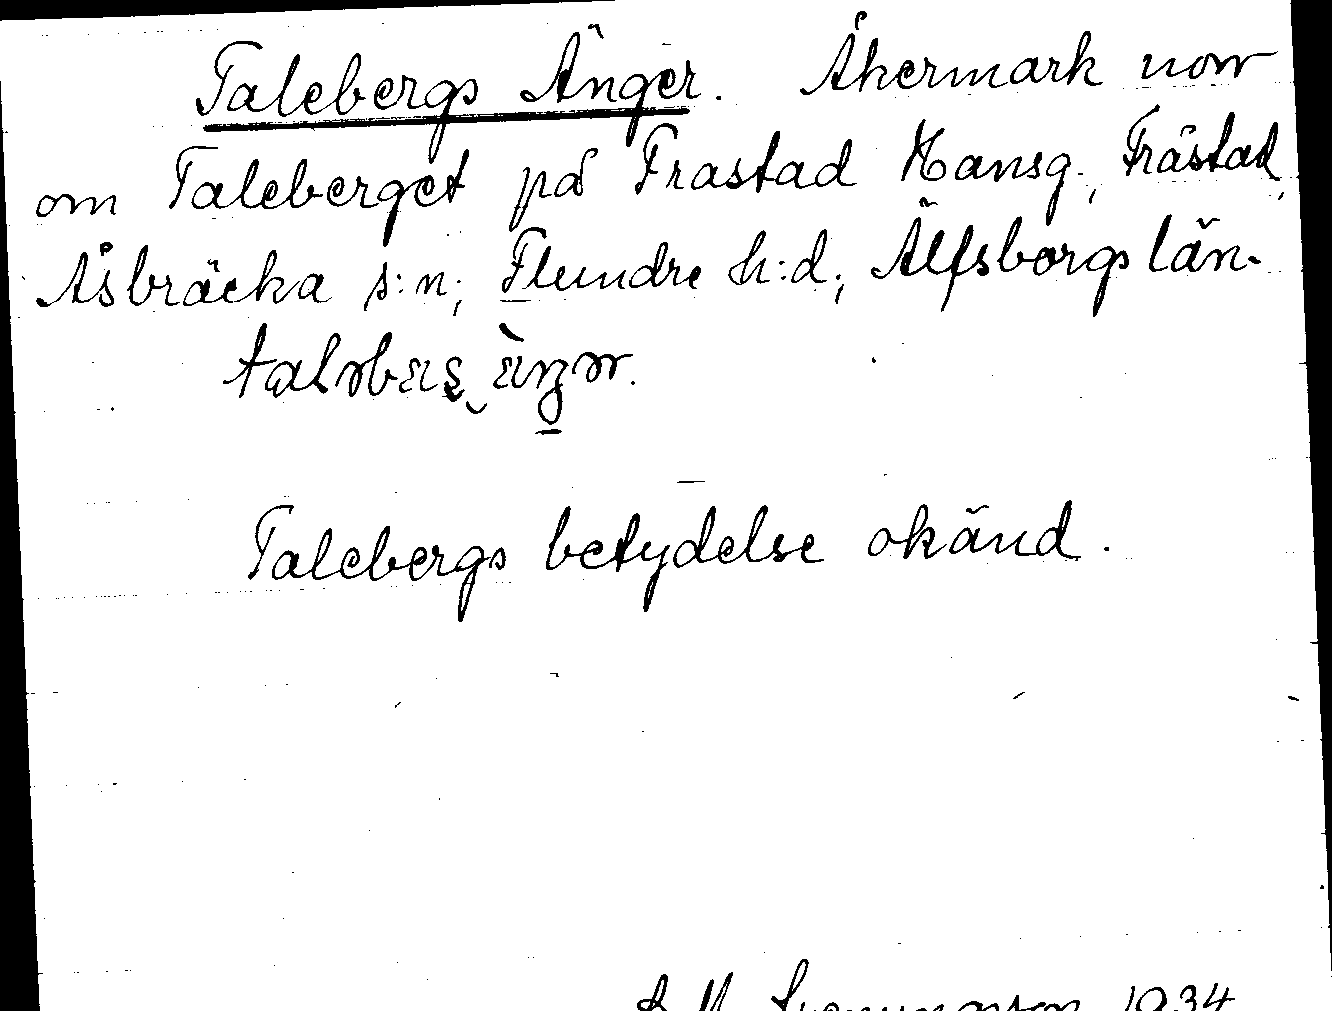 Talebergs Änger. Åkermark norr
om Taleberget på Frastad Hansg., Fråstad,
Åsbräcka s:n, Flundre h:d, Älfsborgs län.
Talebergs betydelse okänd.
1934